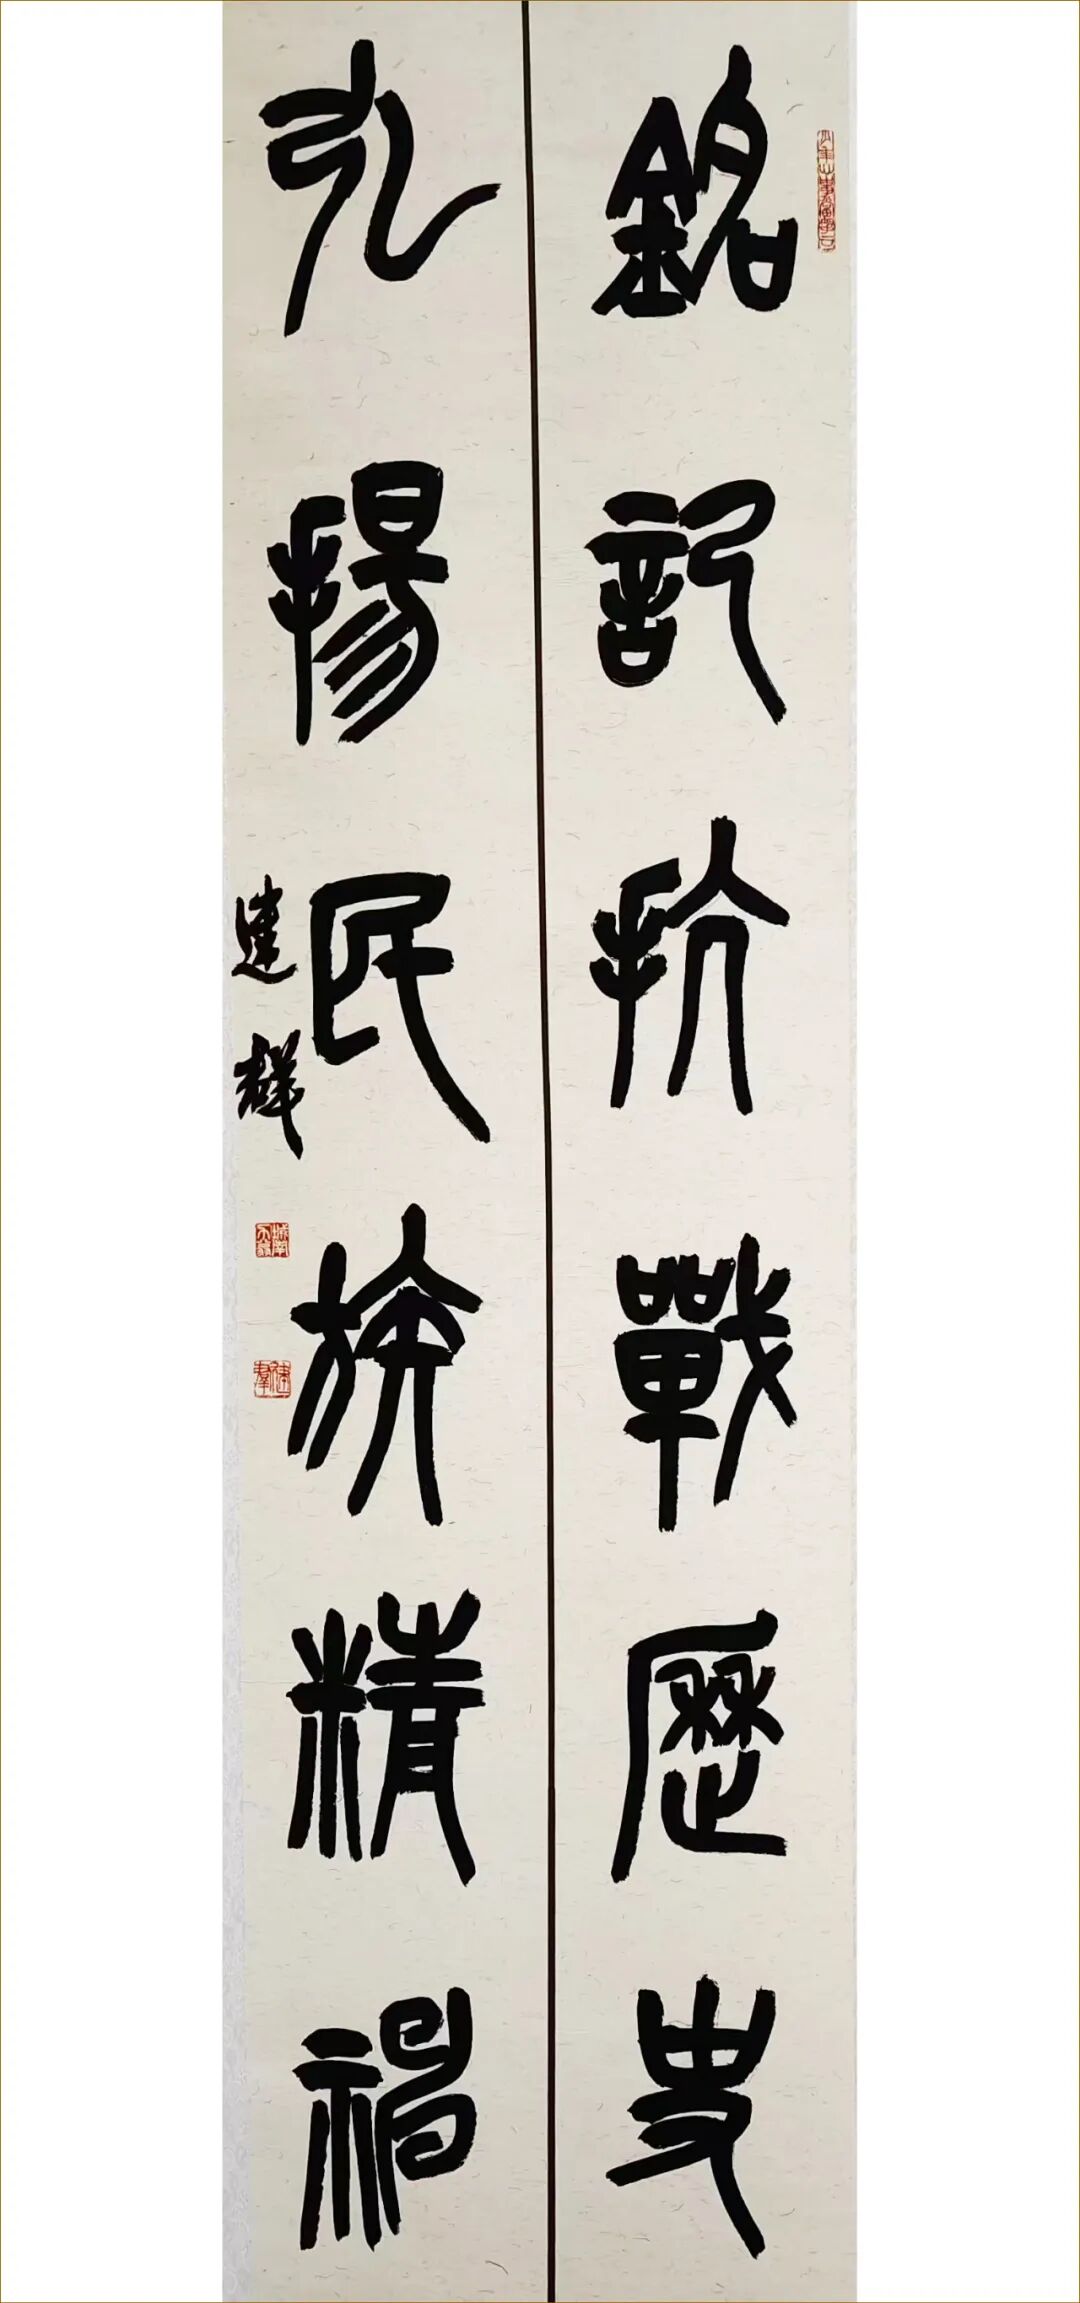 銘記抗戰歷史
弘揚民族精神
建群
建群